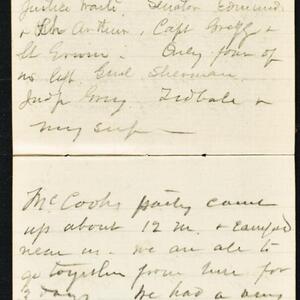 Justice Waite. Senator Edmunds
& Mr Arthur, Capt Gregg &
Lt Erwin. Only four of
us left. Genl Sherman,
Judge Gray, Tidbale &
my self
McCooks party came
up about 12 M. & camped
near us. We are all to
go together from here for
3 days. We had a very